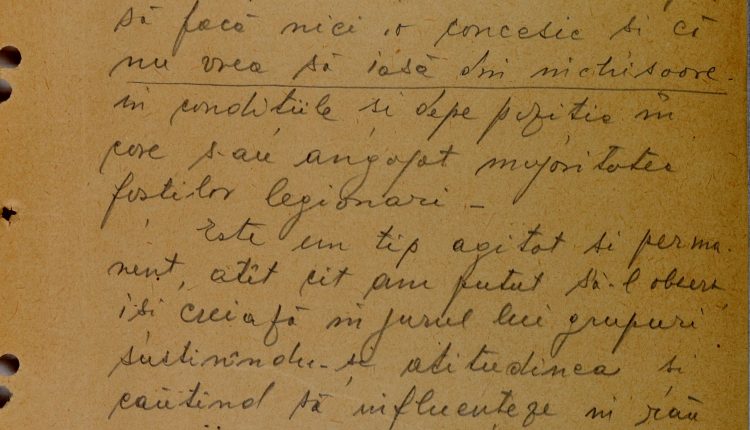 să facă nici o concesie si că
nu vrea să iasă din inchisoare
in conditiile si depe pozitia in
care s-au angajat majoritatea
fostilor legionari -
Este un tip agitat si perma-
nent, atît cît am putut să-l observ
isi creiază in jurul lui grupuri
sustinîndu-se atitudinea si
cautind să influenteze in rău